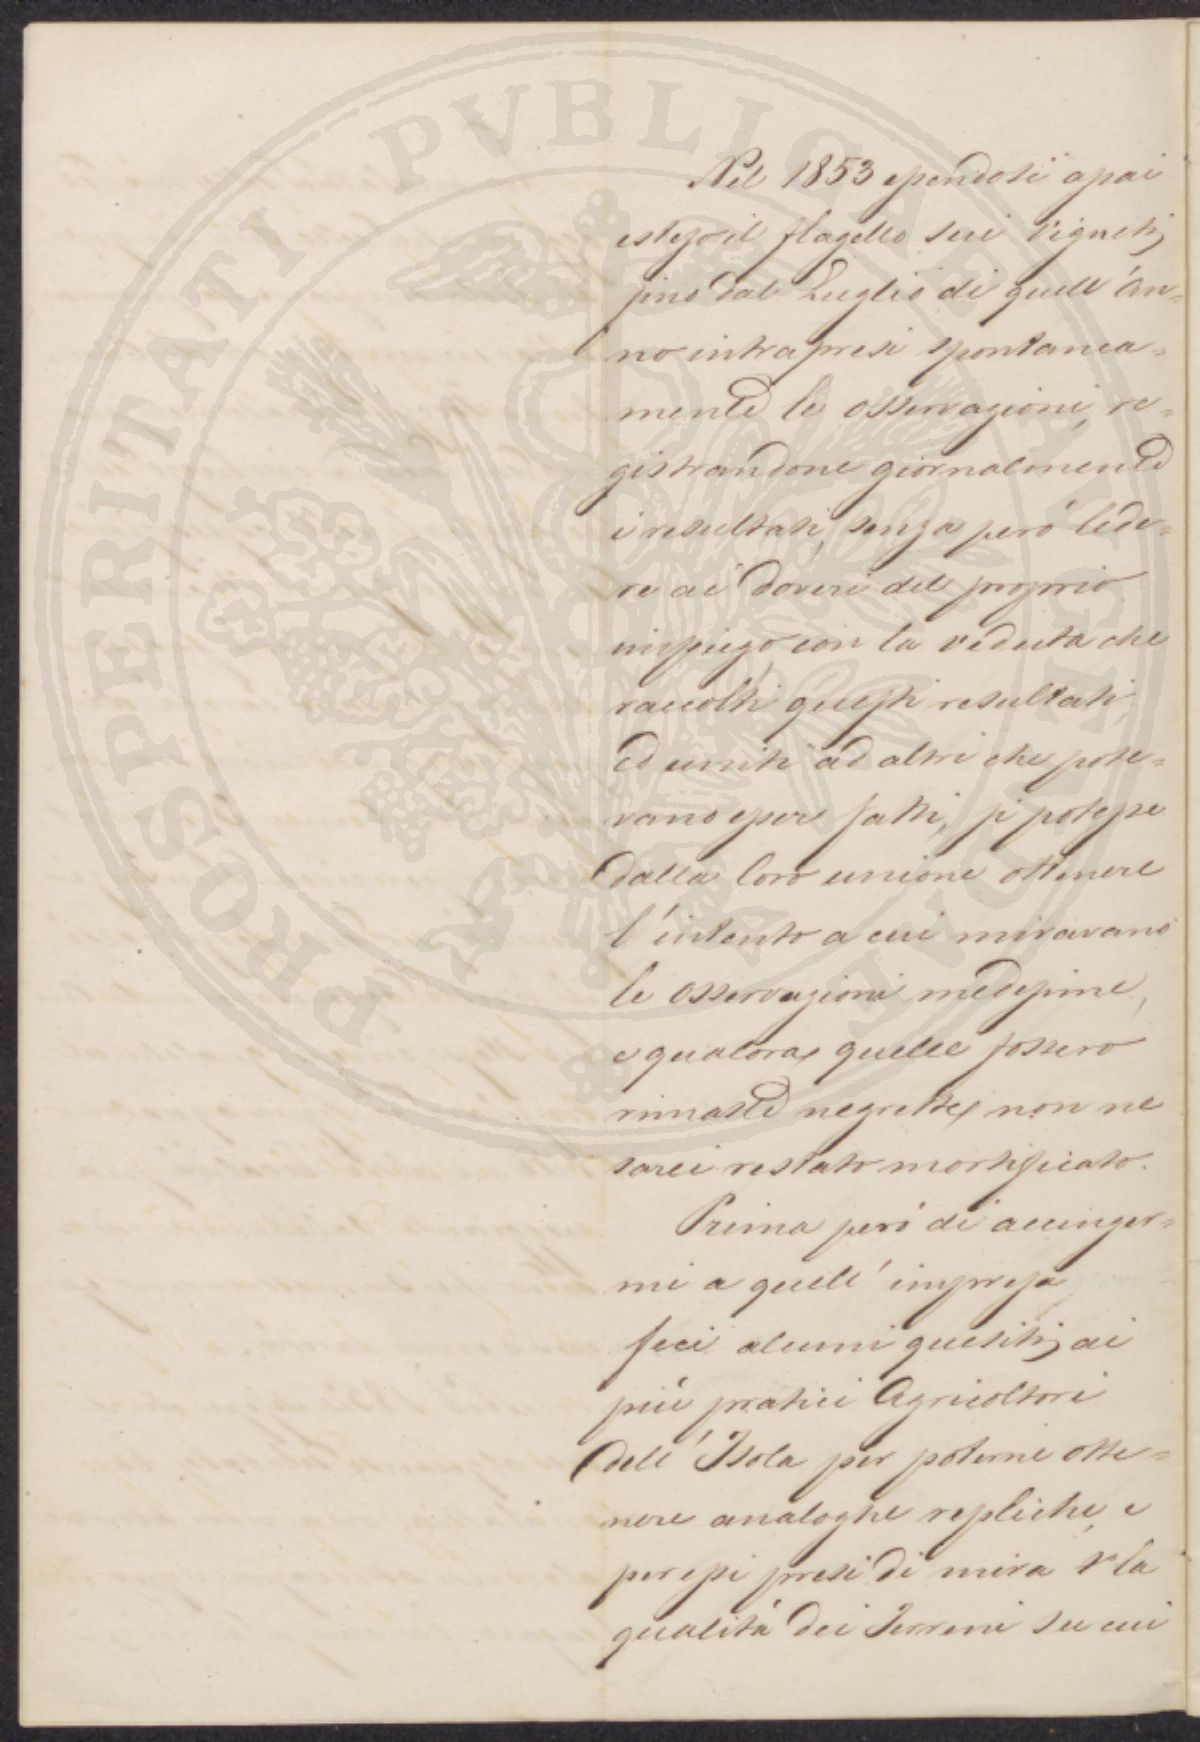 Nel 1853 essendosi assai
esteso il flagello sui vigneti,
fino dal Luglio di quell'an=
no intrapresi spontanea=
mente le osservazioni, re=
gistrandone giornalmente
i resultati, senza però lede=
re ai doveri del proprio
impiego, con la veduta che
raccolti questi resultati,
ed uniti ad altri che pote=
vano esser fatti, si potesse
dalla loro unione ottenere
l'intento a cui miravano
le osservazioni medesime,
e qualora quelle fossero
rimaste negrette, non ne
sarei restato mortificato.
Prima però di accinger=
mi a quell'impresa
feci alcuni quesiti, ai
più pratici Agricoltori
dell'Isola per poterne otte=
nere analoghe repliche, e
per essi presi di mira 1° la
qualità dei Terreni su cui
PROSPERITATI PVBLICAE AVGENDAE